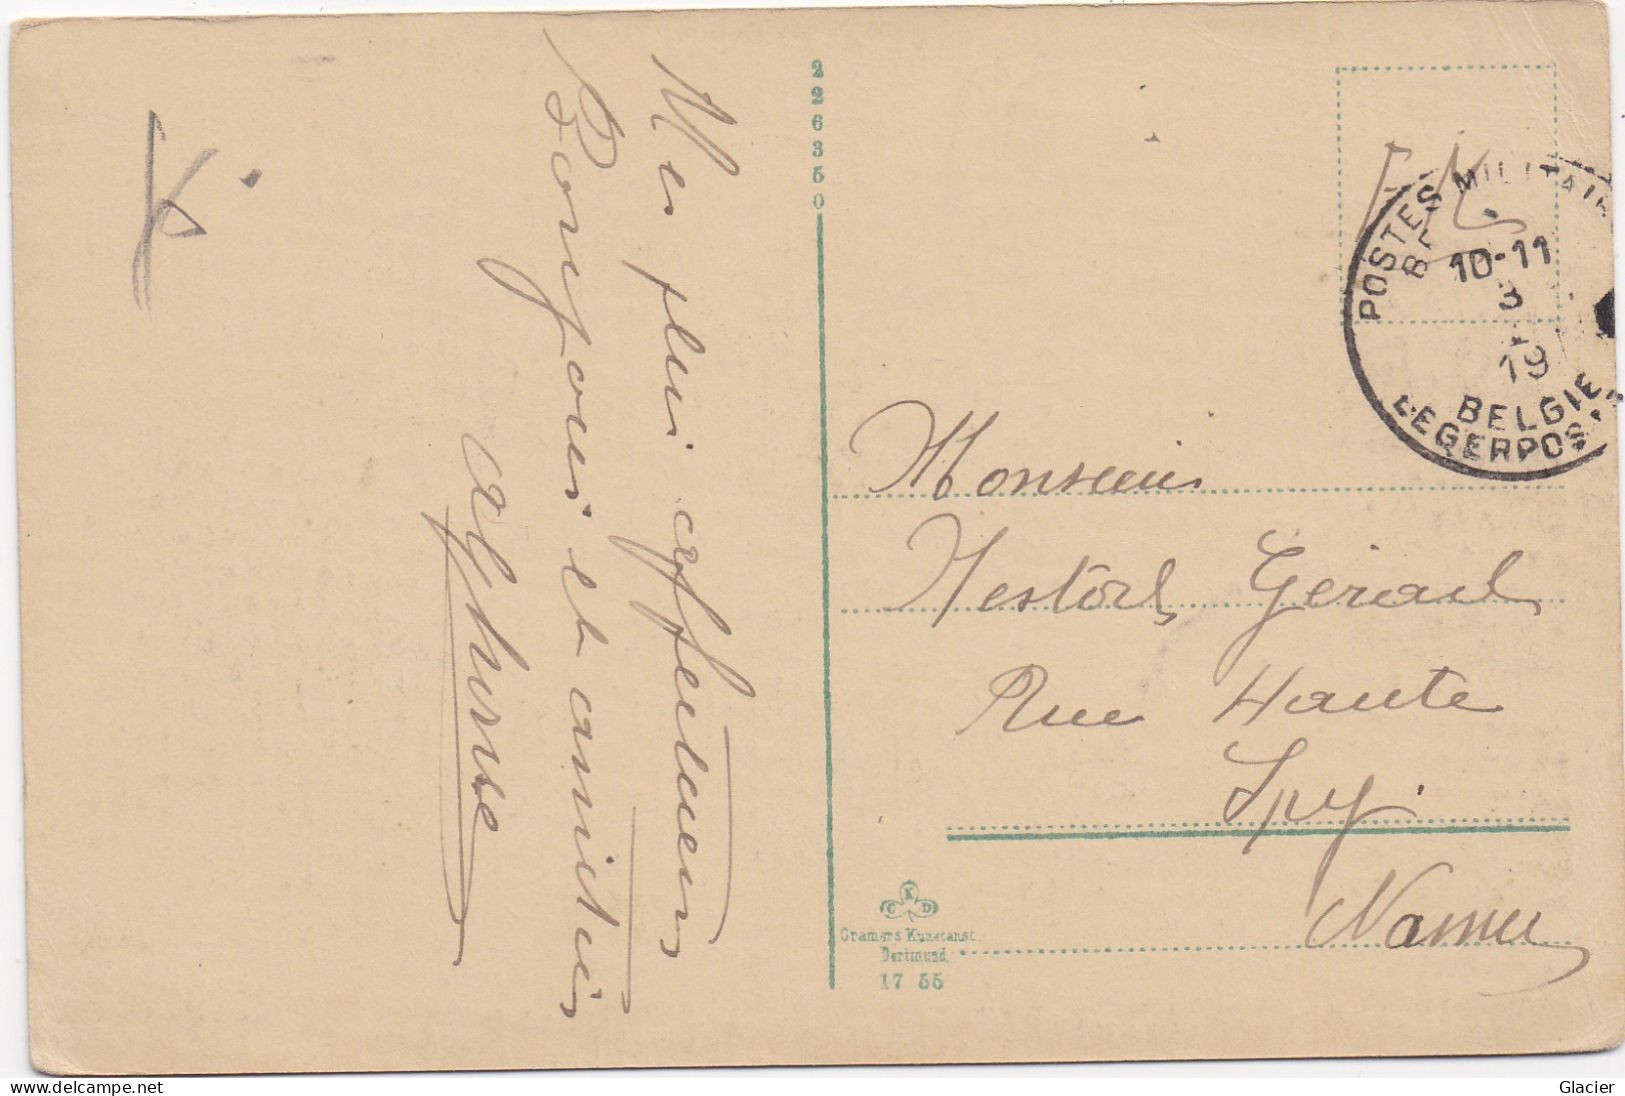 Mes plui affectueux
Bonjours et amitiés
Alphonse
226350
POSTES MILITAIR
10-11
3
19
BELGIE
LEGERPOST
S.M.
Monsieur
Nestor Gerard
Rue Haute
Spy
Namur
C K D
Cramers Kunstanst.
Dortmund
17 55
www.delcampe.net
Glacier